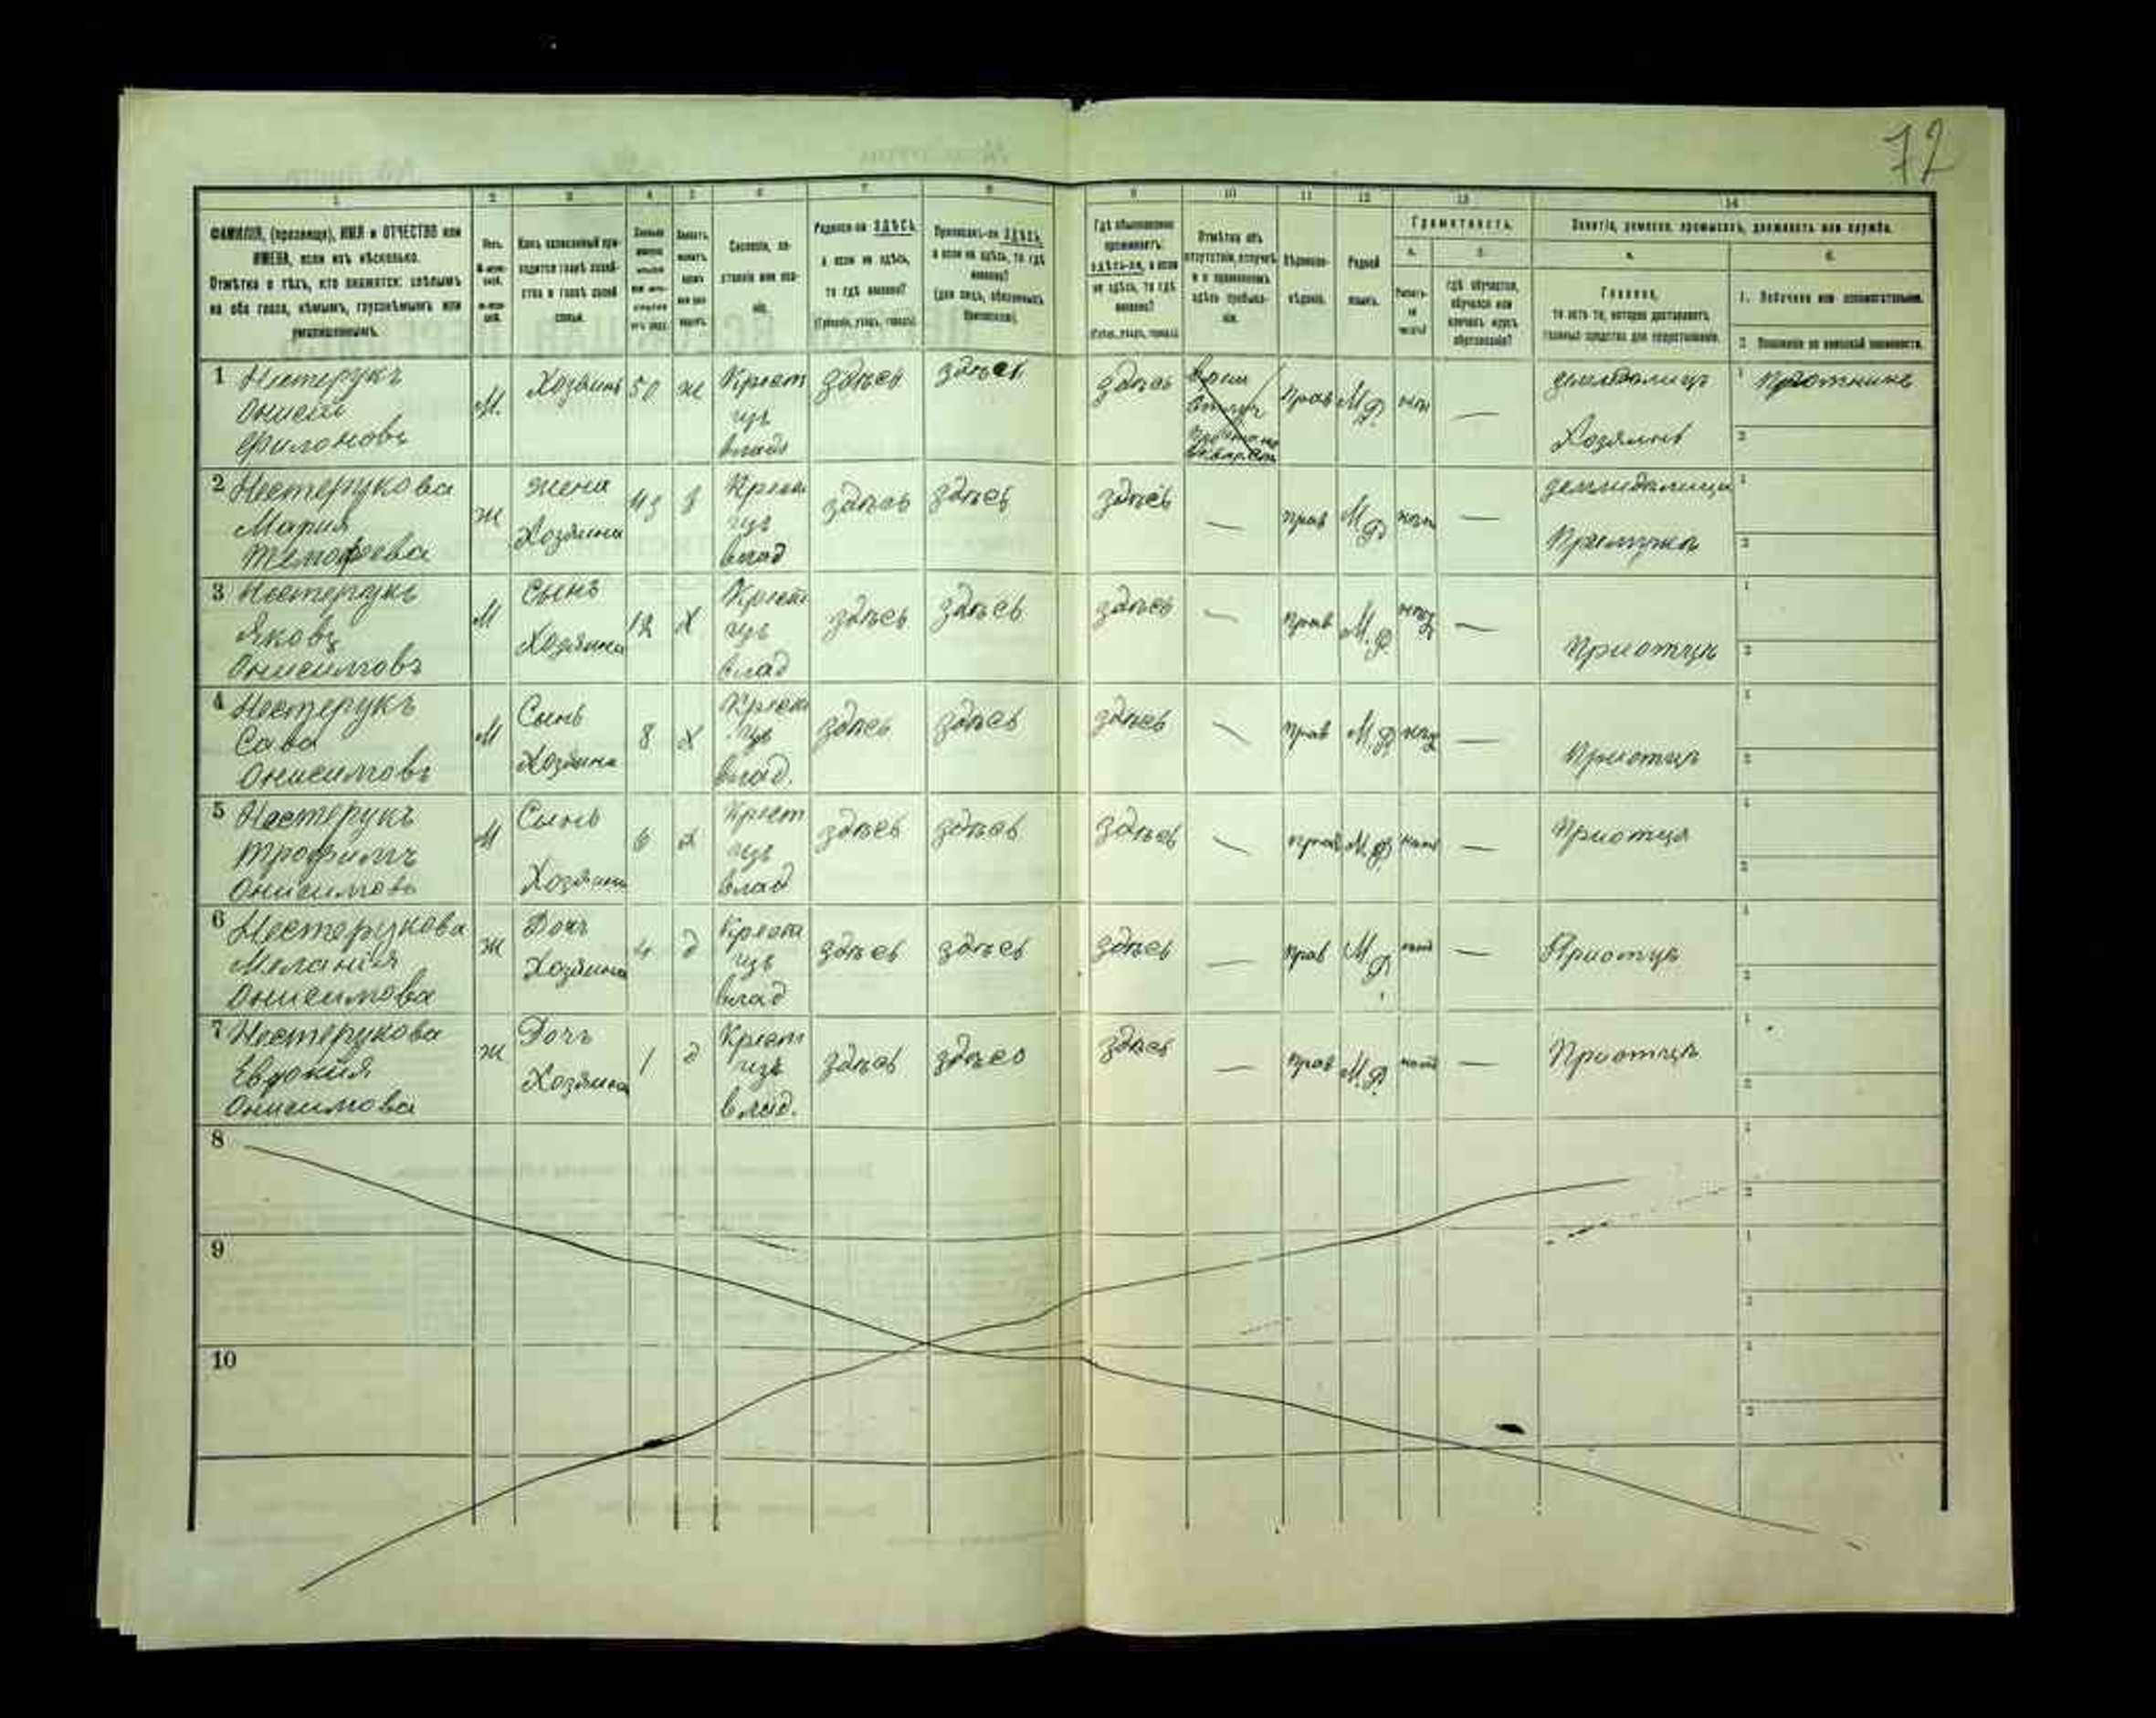 72
1 2 3 4 5 6 7 8 9 10 11 12 13 14
ФАМИЛІЯ, (прозвище), ИМЯ и ОТЧЕСТВО или
ИМЕНА, если ихъ нѣсколько.
Отмѣтка о тѣхъ, кто окажется: слѣпымъ
на оба глаза, нѣмымъ, глухонѣмымъ или
умалишеннымъ.
Полъ.
Какъ записанный при-
ходится главѣ хозяй-
ства и главѣ своей
семьи.
Сословіе, со-
стояніе или зва-
ніе.
Родился-ли ЗДѢСЬ,
а если не здѣсь,
то гдѣ именно?
(Губернія, уѣздъ, городъ).
Приписанъ-ли ЗДѢСЬ,
а если не здѣсь, то гдѣ
именно?
(для лицъ, обязанныхъ
припискою).
Гдѣ обыкновенно
проживаетъ:
здѣсь-ли, а если
не здѣсь, то гдѣ
именно?
(Губ., уѣздъ, городъ).
Отмѣтка объ
отсутствіи, отлучкѣ
и о временномъ
здѣсь пребыва-
ніи.
Вѣроиспо-
вѣданіе.
Родной
языкъ.
Грамотность.
а. б.
Умѣетъ-
ли
читать?
гдѣ обучается,
обучался или
кончилъ курсъ
образованія?
Занятіе, ремесло, промыселъ, должность или служба.
а. б.
Главное,
то есть то, которое доставляетъ
главныя средства для существованія.
1. Побочное или вспомогательное.
2. Положеніе по воинской повинности.
1 Нестерукъ М. Хозяинъ 50 ж Крест здѣсь здѣсь здѣсь прав М.Р. земледѣлецъ 1 Плотникъ
Онисим изъ
Филоновъ влад Хозяинъ 2
2 Нестерукова ж жена 43 з Крест здѣсь здѣсь здѣсь — прав М.Р. — земледѣлица 1
Мария Хозяина изъ
Темофеева влад При мужѣ 2
3 Нестерукъ М Сынъ 12 х Крест здѣсь здѣсь здѣсь — прав М.Р. — 1
Яковъ Хозяина изъ
Онисимовъ влад При отцѣ 2
4 Нестерукъ М Сынъ 8 х Крест здѣсь здѣсь здѣсь — прав М.Р. — 1
Сава Хозяина изъ
Онисимовъ влад. При отцѣ 2
5 Нестерукъ М Сынъ 6 х Крест здѣсь здѣсь здѣсь — прав М.Р. — При отцѣ 1
Трофимъ изъ
Онисимовъ Хозяина влад 2
6 Нестерукова ж Дочь 4 д Крест здѣсь здѣсь здѣсь — прав М.Р. — При отцѣ 1
Меланія Хозяина изъ
Онисимова влад 2
7 Нестерукова ж Дочь 1 д Крест здѣсь здѣсь здѣсь — прав М.Р. — При отцѣ 1
Евдокія Хозяина изъ
Онисимова влад. 2
8 1
2
9 1
2
10 1
2